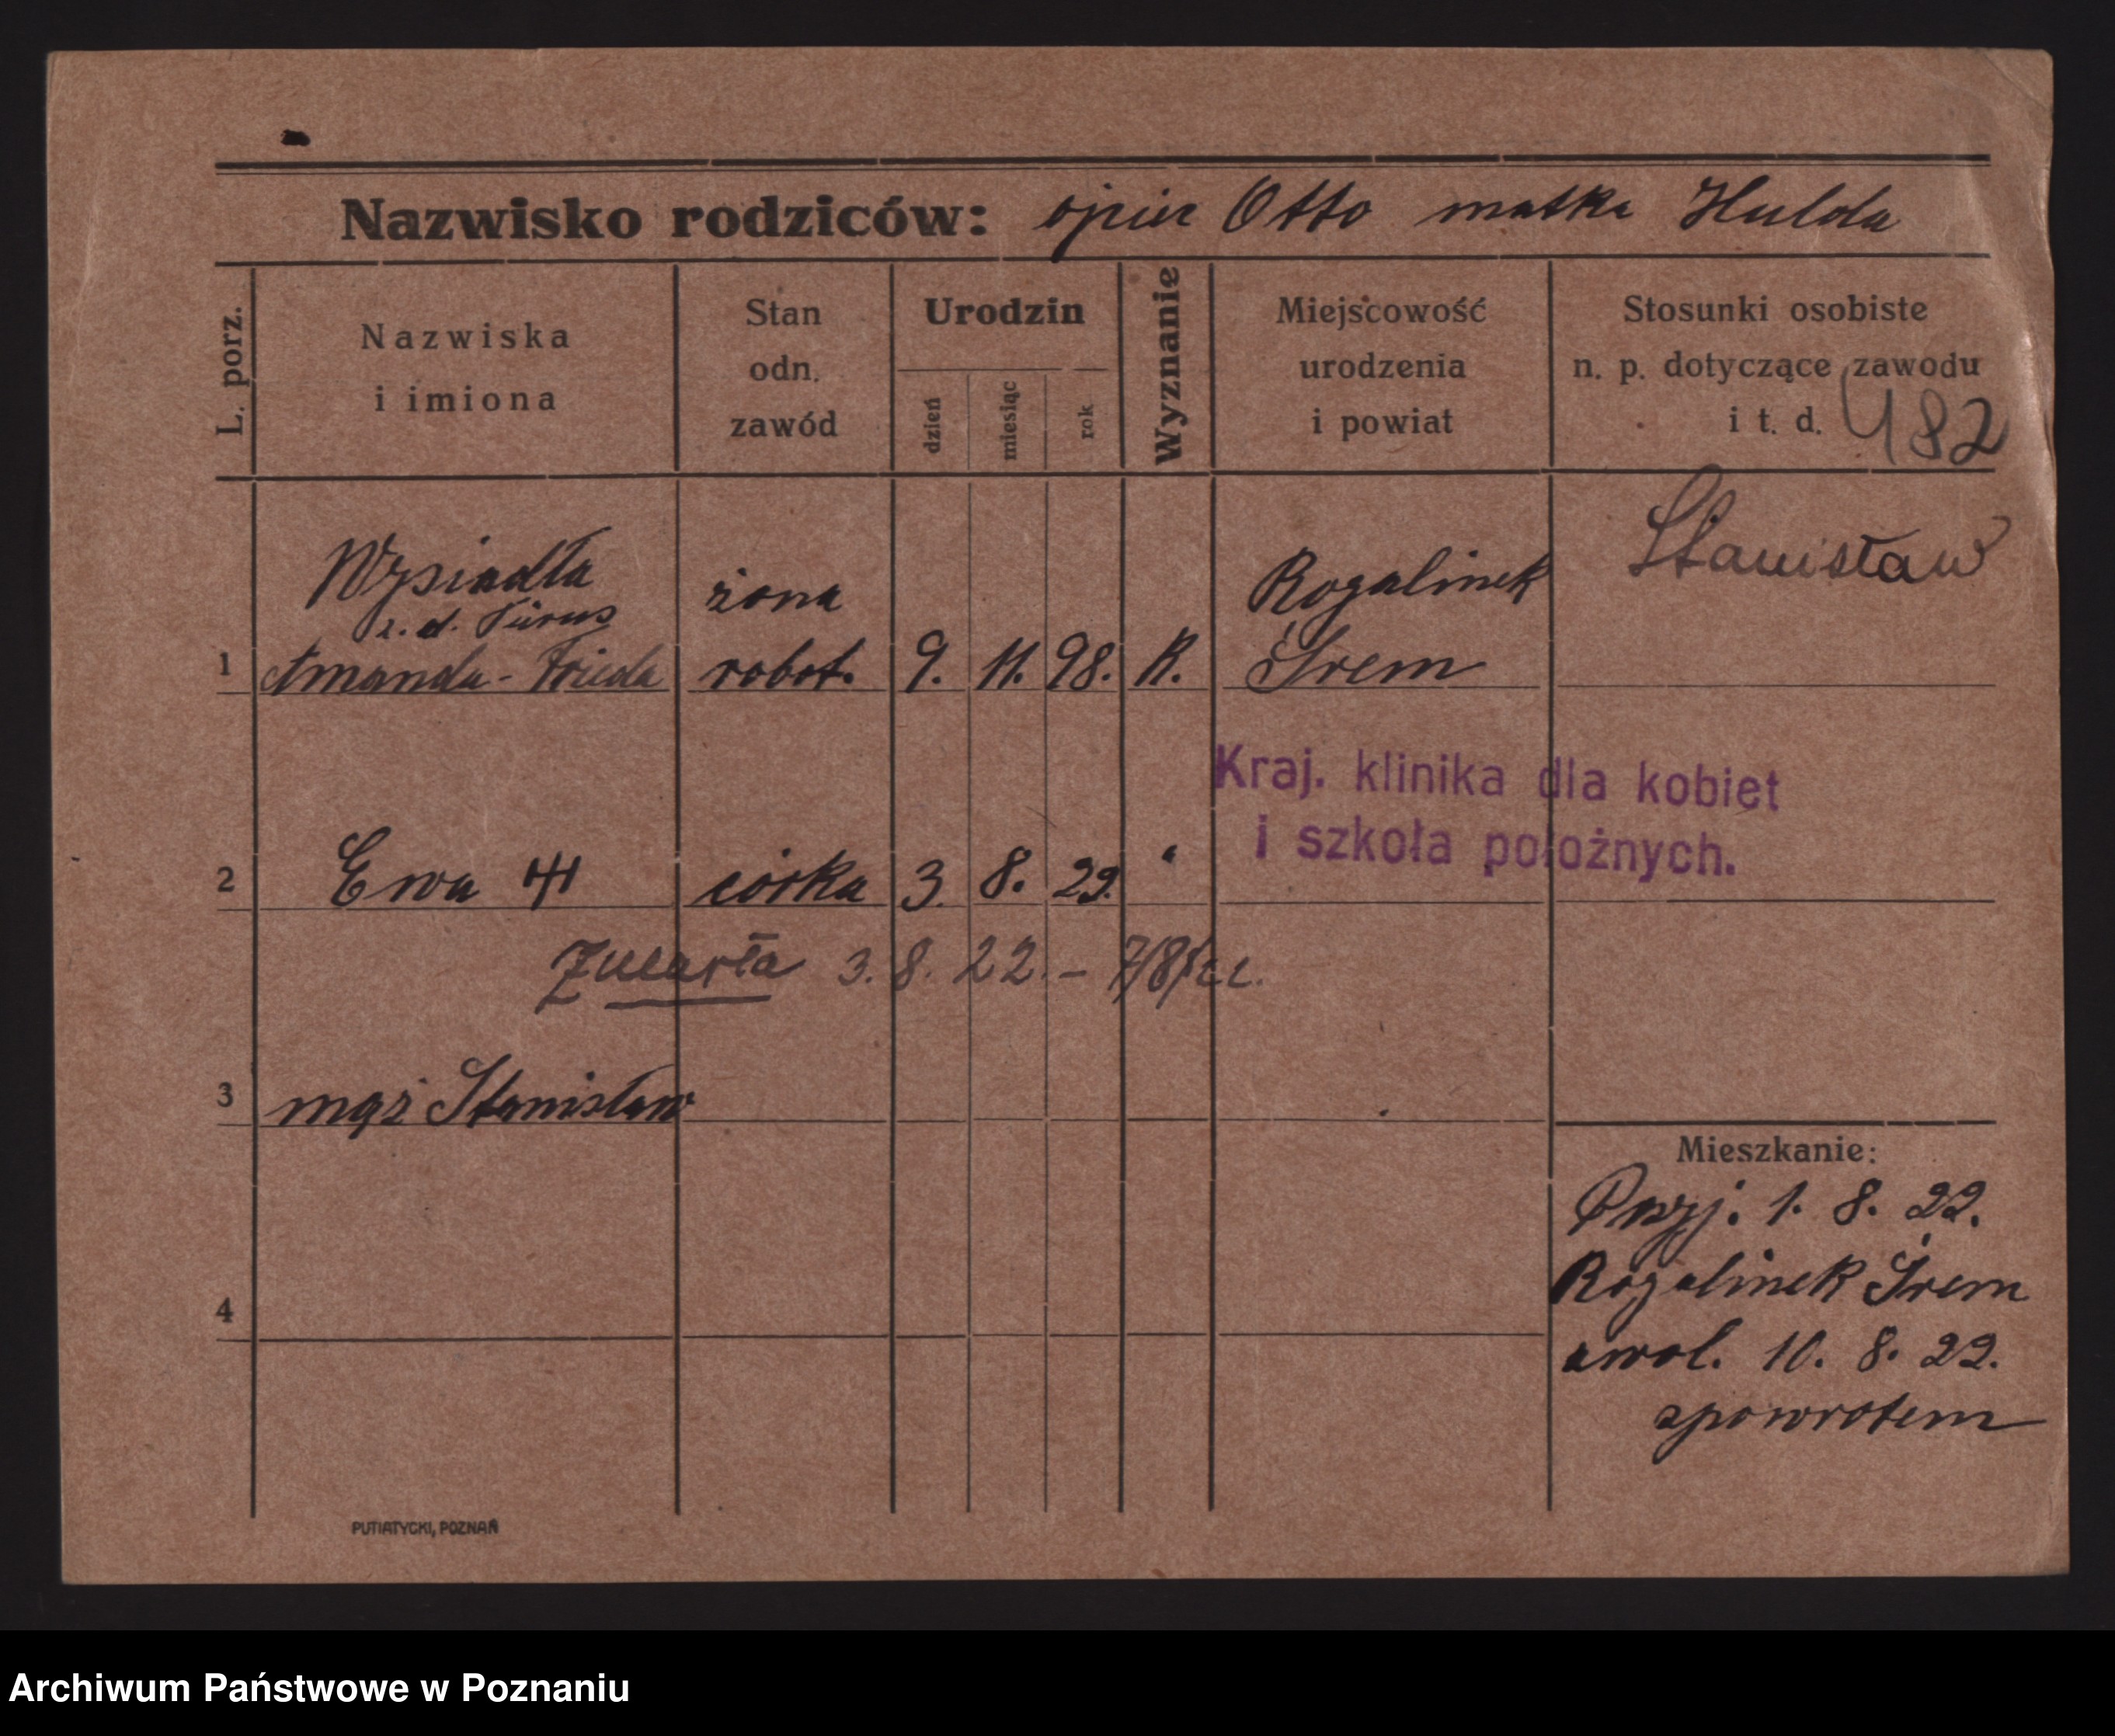 Nazwisko rodziców: ojciec Otto matka Hulda
L. porz.
Nazwiska
i imiona
Stan
odn.
zawód
Urodzin
dzień
miesiąc
rok
Wyznanie
Miejscowość
urodzenia
i powiat
Stosunki osobiste
n. p. dotyczące zawodu
i t. d. 482
Wysiadła
z. d.
żona
Rogalinek
Stanisław
1 Amanda-Frieda robot. 9. 11. 98. K. Śrem
Kraj. klinika dla kobiet
i szkoła położnych.
2 Ewa córka 3. 8. 22. "
Zmarła 3. 8. 22. –
3 mąż Stanisław
Mieszkanie:
Przyj. 1. 8. 22.
Rogalinek Śrem
4
zwol. 10. 8. 22.
spowrotem
PUTIATYCKI, POZNAŃ
Archiwum Państwowe w Poznaniu